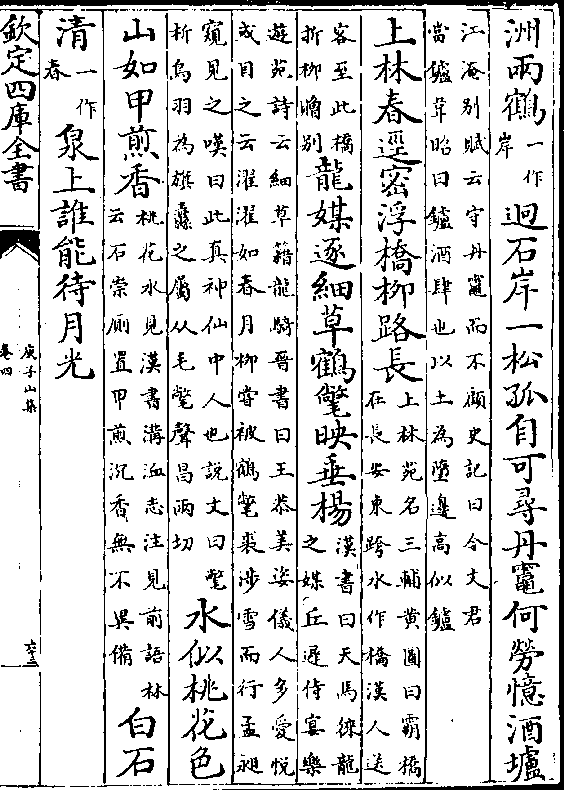 洲兩鶴一作岸迥石岸一松孤自可尋丹竈何勞憶酒壚
江淹别賦云守丹竈而不顧史記曰令文君
當壚韋昭曰鑪酒肆也以土為墮邊高似鑪
上林春逕宻浮橋柳路長上林苑名三輔黄圖曰霸橋
在長安東跨水作橋漢人送
客至此橋
折柳贈别龍媒逐細草鶴氅映垂楊漢書曰天馬徠龍
之媒丘遲侍宴樂
遊苑詩云細草籍龍騎晉書曰王恭美姿儀人多愛悦
或目之云濯濯如春月柳嘗被鶴氅裘涉雪而行孟昶
窺見之嘆曰此真神仙中人也說文曰氅
析鳥羽為旗纛之屬从毛氅聲昌兩切水似桃花色
山如甲煎香桃花水見漢書溝洫志注見前語林
云石崇厠置甲煎沉香無不異備白石
清一作春泉上誰能待月光
欽定四庫全書
庾子山集
卷四
六十三